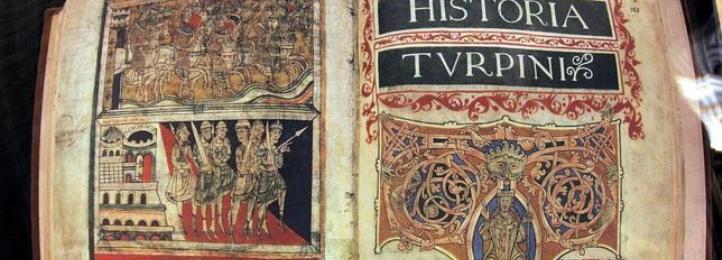 HISTORIA
TVRPINI